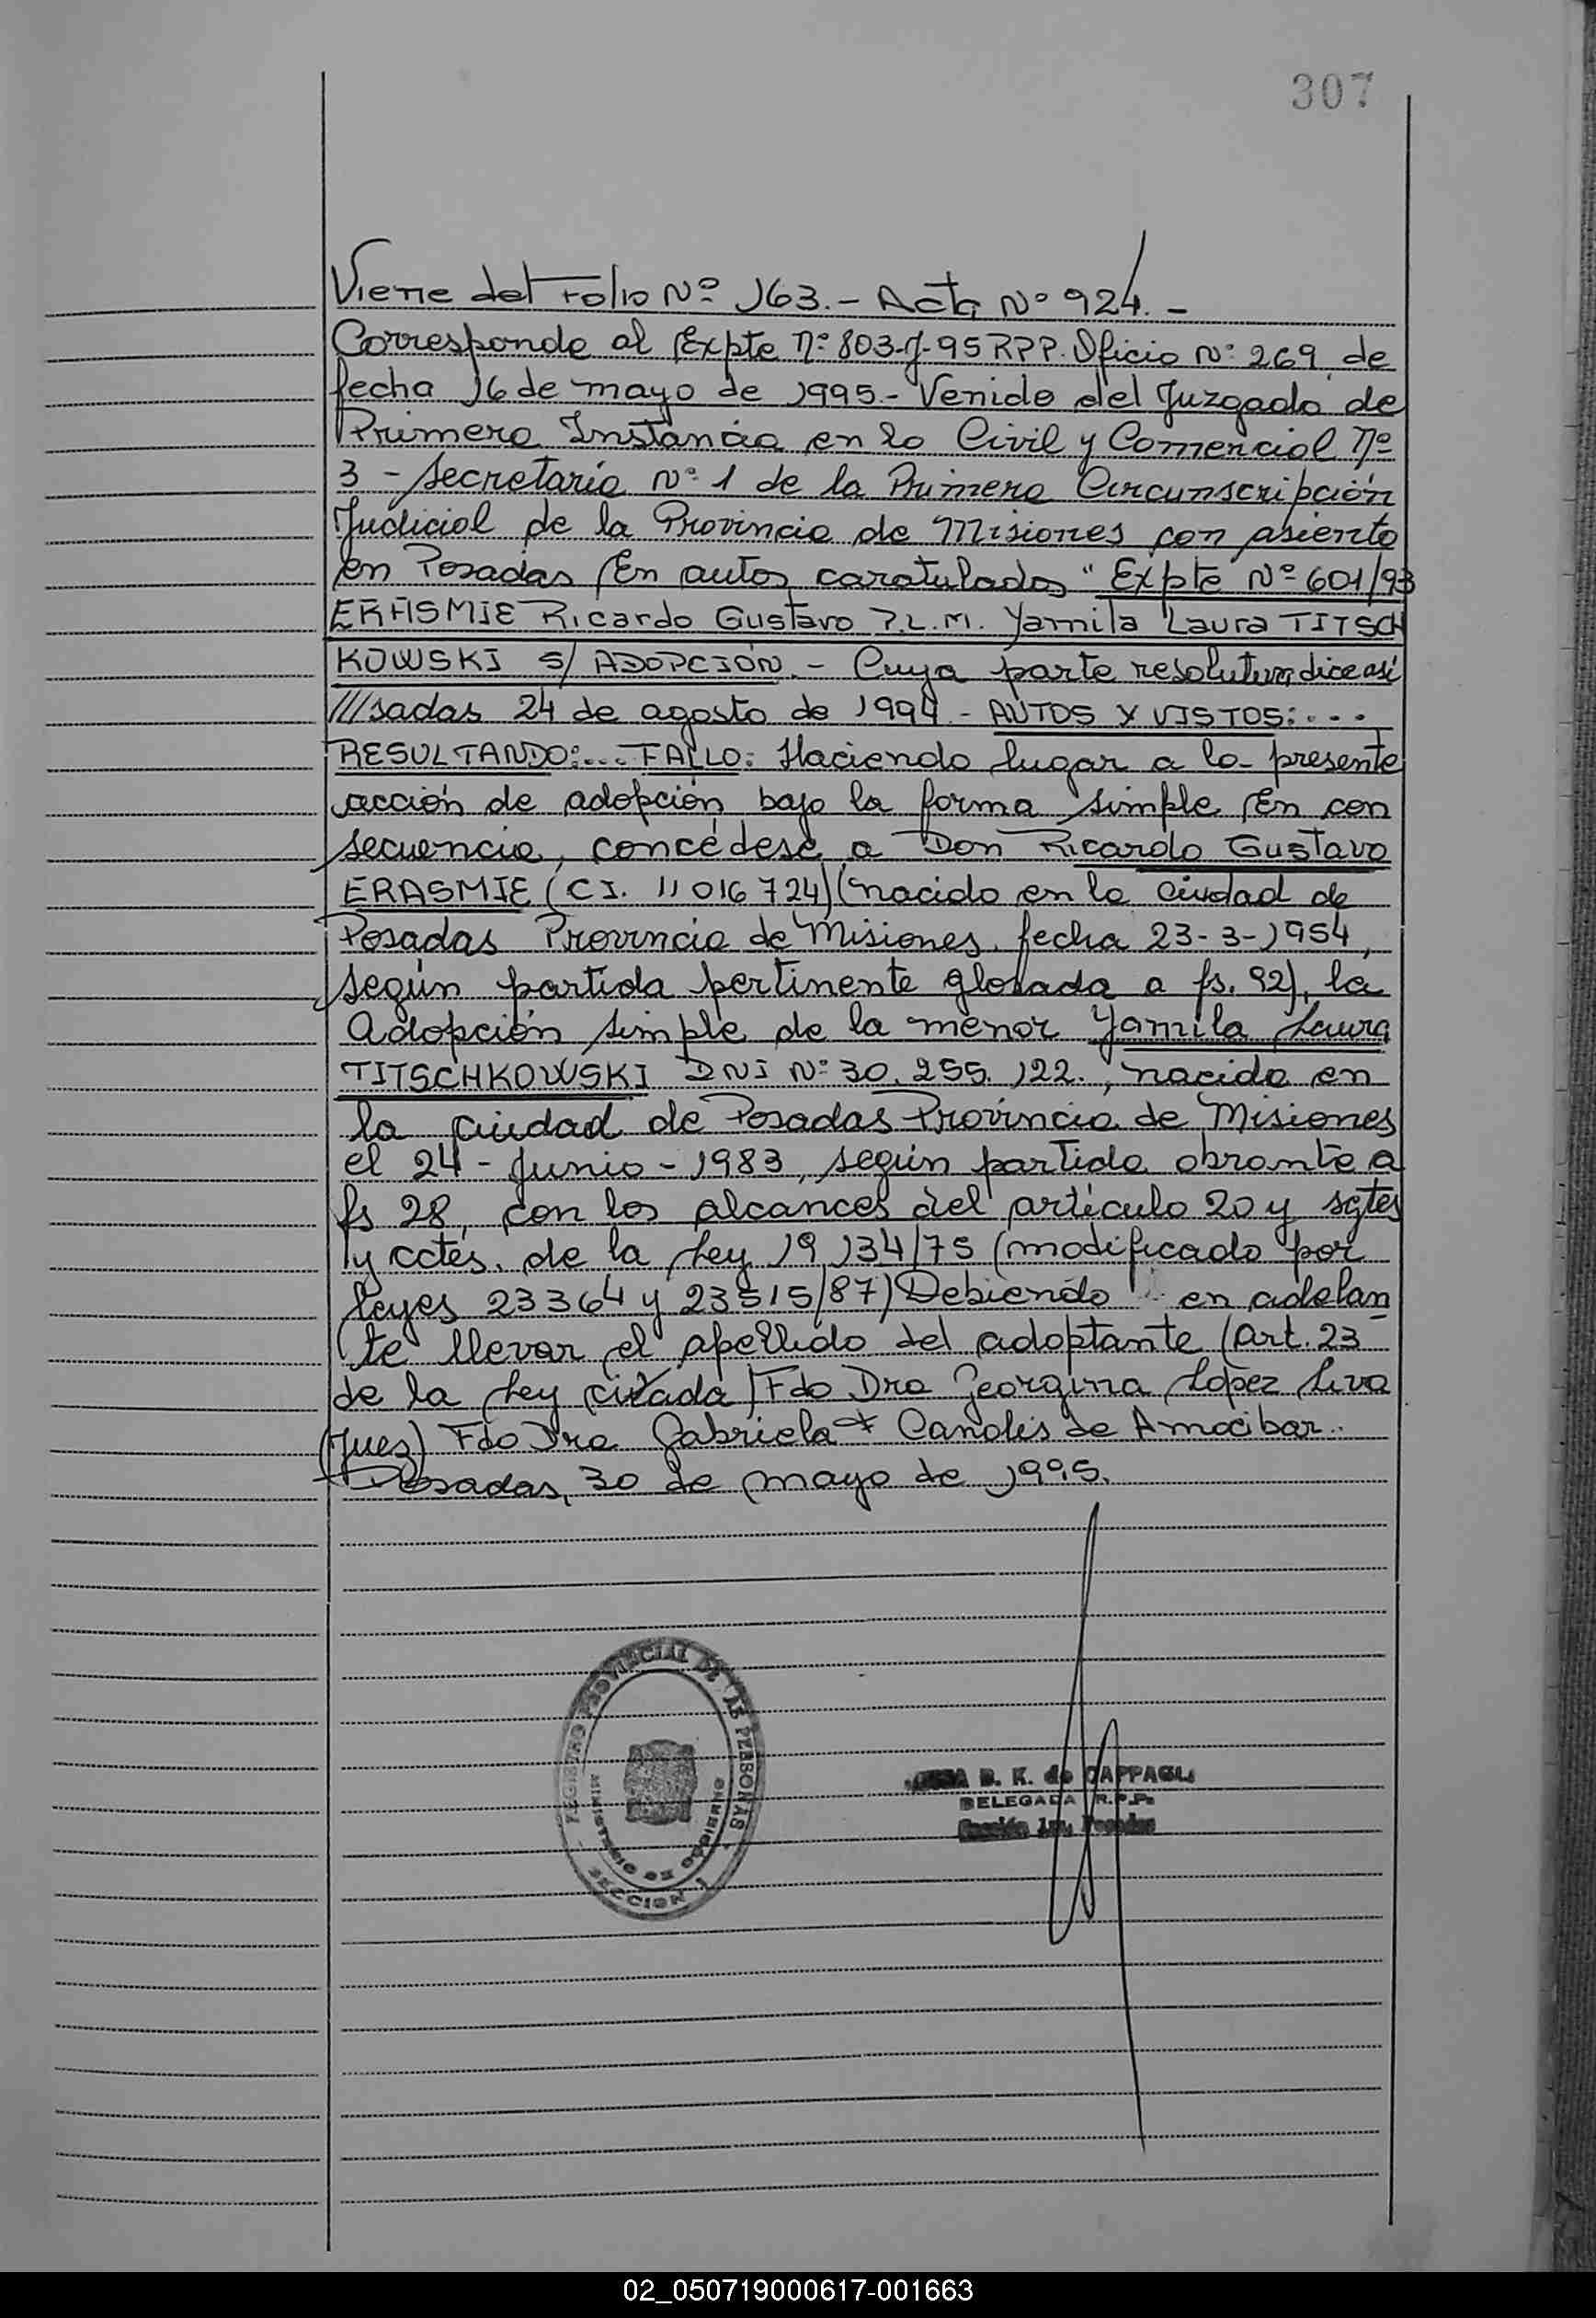 307
Viene del Folio Nº 163.- Acta Nº 924.-
Corresponde al Expte Nº 803-J-95 RPP. Oficio Nº 269 de
fecha 16 de mayo de 1995.- Venido del Juzgado de
Primera Instancia en lo Civil y Comercial Nº
3 - Secretaría Nº 1 de la Primera Circunscripción
Judicial de la Provincia de Misiones con asiento
en Posadas En autos caratulados "Expte Nº 601/93
ERASMIE Ricardo Gustavo P.L.M. Yamila Laura TITSCH
KOWSKI S/ ADOPCIÓN.- Cuya parte resolutiva dice así
///sadas 24 de agosto de 1994 - AUTOS Y VISTOS:...
RESULTANDO:... FALLO: Haciendo lugar a la presente
acción de adopción bajo la forma simple En con
secuencia, concédese a Don Ricardo Gustavo
ERASMIE (CI. 11 016 724) (nacido en la ciudad de
Posadas Provincia de Misiones. fecha 23-3-1954,
según partida pertinente glosada a fs. 92), la
Adopción simple de la menor Yamila Laura
TITSCHKOWSKI DNI Nº 30.255.122., nacida en
la ciudad de Posadas Provincia de Misiones
el 24 - Junio - 1983, según partida obrante a
fs 28, con los alcances del artículo 20 y sgtes
y cctes. de la Ley 19.134/75 (modificado por
leyes 23364 y 23515/87) Debiendo en adelan
te llevar el apellido del adoptante (art. 23
de la Ley citada) Fdo Dra Georgina López Liva
(Juez) Fdo Dra Gabriela Canalis de Amocibar.
Posadas, 30 de mayo de 1995.
REGISTRO PROVINCIAL DE LAS PERSONAS
MINISTERIO DE GOBIERNO
SECCION 1
B. K. de CAPPAGLI
DELEGADA R.P.P.
Sección 1ra. Posadas
02_050719000617-001663